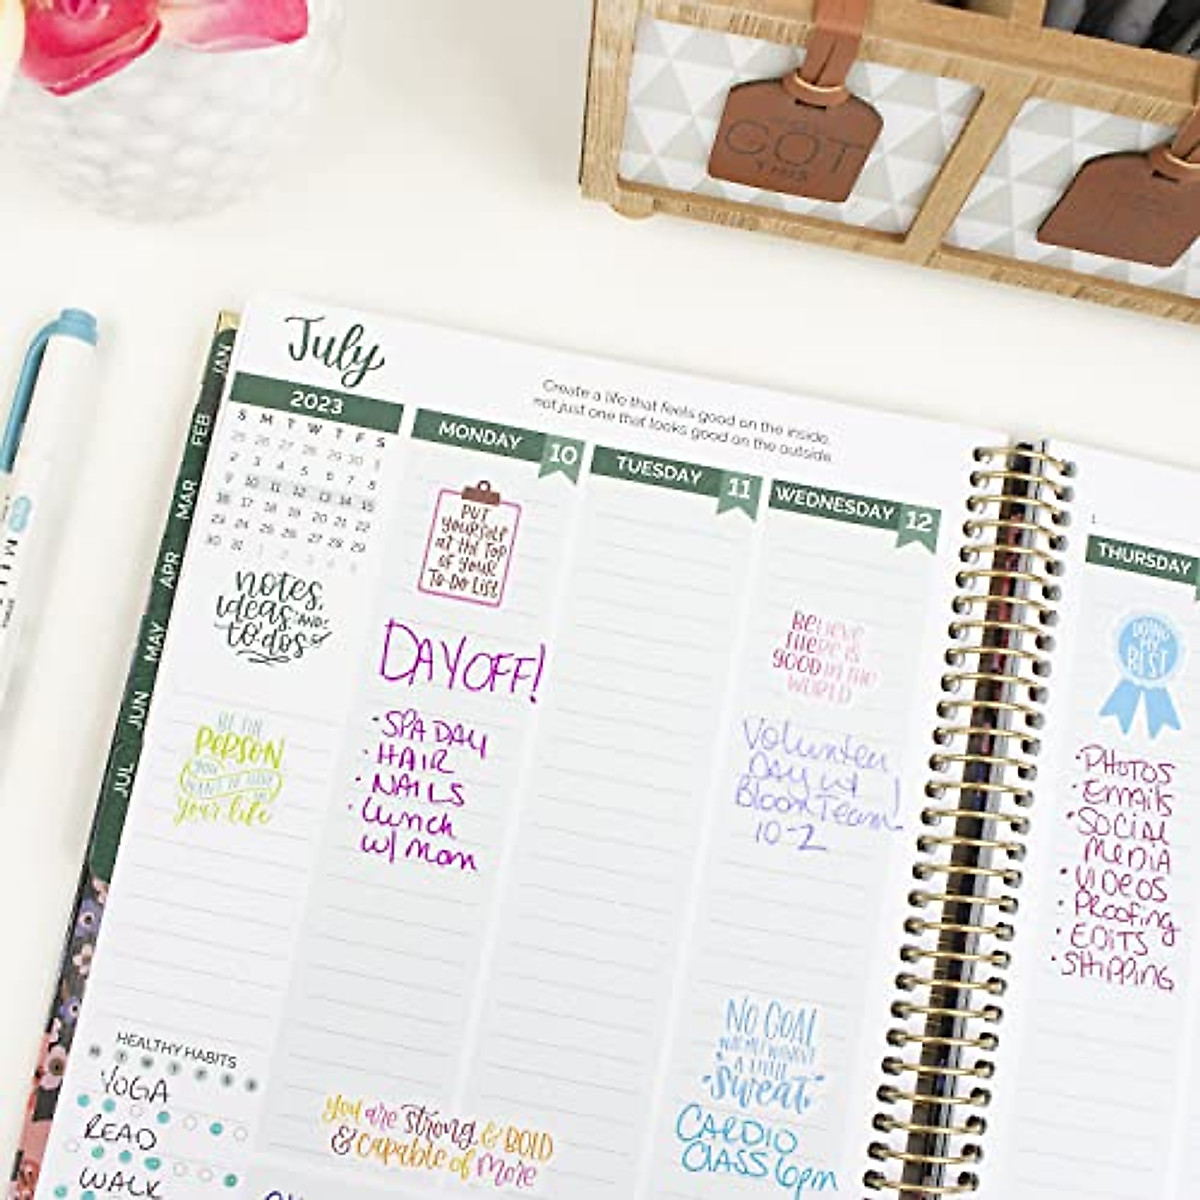 GOT
July
Create a life that feels good on the inside,
not just one that looks good on the outside.
2023
S M T W T F S
25 26 27 28 29 30 1
2 3 4 5 6 7 8
9 10 11 12 13 14 15
16 17 18 19 20 21 22
23 24 25 26 27 28 29
30 31 1 2 3 4 5
JAN
FEB
MAR
APR
MAY
JUN
JUL
notes,
ideas, AND
to'dos
BE THE
PERSON
YOU
WANT TO HAVE
IN
your life
HEALTHY HABITS
M T W T F S S
YOGA
READ
WALK
MONDAY 10
PUT
yourself
at the Top
of your
To-Do List
DAY OFF!
• SPA DAY
• HAIR
• NAILS
• Lunch
w/ mom
you are strong & BOLD
& capable of more
TUESDAY 11
WEDNESDAY 12
BELIEVE
THERE IS
GOOD IN THE
WORLD
Volunteer
DAY w/
Bloom Team!
10-2
NO GOAL
WAS MET WITHOUT
A LITTLE
sweat
CARDIO
CLASS 6pm
THURSDAY
DOING
MY
BEST
• PHOTOS
• Emails
• SOCIAL
MEDIA
• VIDEOS
• Proofing
• EDITS
• SHIPPING